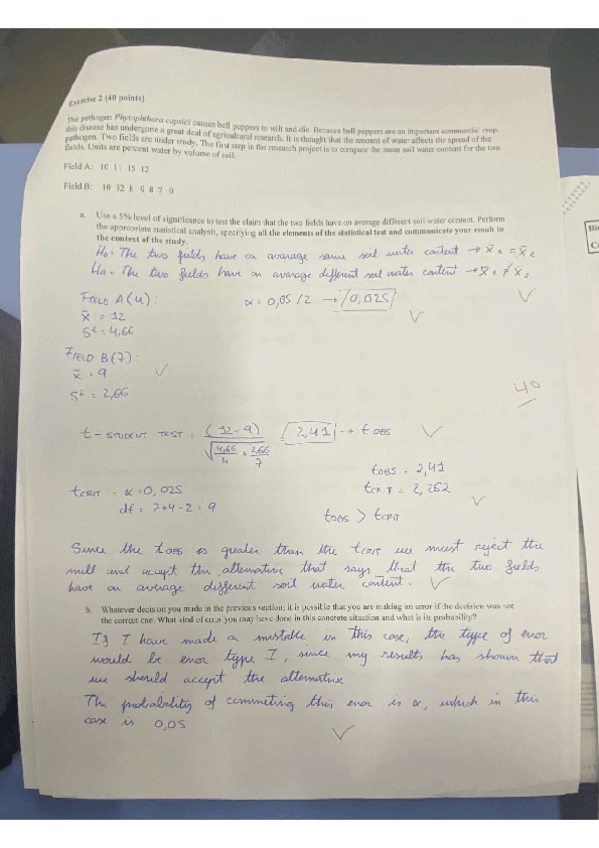 Exercise 2 (40 points)
The pathogen Phytophthora capsici causes bell peppers to wilt and die. Because bell peppers are an important commercial crop,
this disease has undergone a great deal of agricultural research. It is thought that the amount of water affects the spread of the
pathogen. Two fields are under study. The first step in the research project is to compare the mean soil water content for the two
fields. Units are percent water by volume of soil.
Field A: 10 11 15 12
Field B: 10 12 8 9 8 7 9
a. Use a 5% level of significance to test the claim that the two fields have on average different soil water content. Perform
the appropriate statistical analysis, specifying all the elements of the statistical test and communicate your result in
the context of the study.
H₀ = The two fields have on avarage same soil water content → x̄₁ = x̄₂
Ha = The two fields have on avarage different soil water content → x̄₁ ≠ x̄₂
FIELD A (4) :
α = 0,05 /2 → /0,025/
x̄ = 12
S² = 4,66
FIELD B (7) :
x̄ = 9
S² = 2,66
40
t - STUDENT TEST : (12-9) 2,41 → tOBS
√ 4,66 + 2,66
4 7
tOBS = 2,41
tCRIT = 2,262
tCRIT α = 0,025
df = 7+4-2 = 9
tOBS > tCRIT
Since the tOBS is greater than the tCRIT we must reject the
null and accept the alternative that says that the two fields
have on average different soil water content.
b. Whatever decision you made in the previous section, it is possible that you are making an error if the decision was not
the correct one. What kind of error you may have done in this concrete situation and what is its probability?
If I have made a mistake in this case, the type of error
would be error type I, since my results has shown that
we should accept the alternative.
The probability of commeting this error is α, which in this
case is 0,05